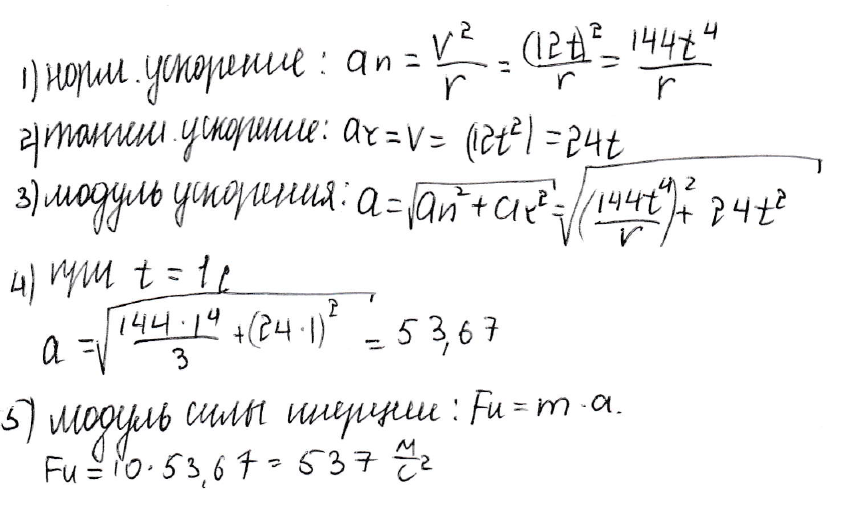 1) норм. ускорение: an = V²/r = (12t)²/r = 144t⁴/r
2) танген. ускорение: aτ = V = (12t²) = 24t
3) модуль ускорения: a = √(an² + aτ²) = √((144t⁴/r)² + 24t²)
4) при t = 1с
a = √(144·1⁴/3 + (24·1)²) = 53,67
5) модуль силы инерции: Fu = m·a.
Fu = 10·53,67 = 537 м/с²